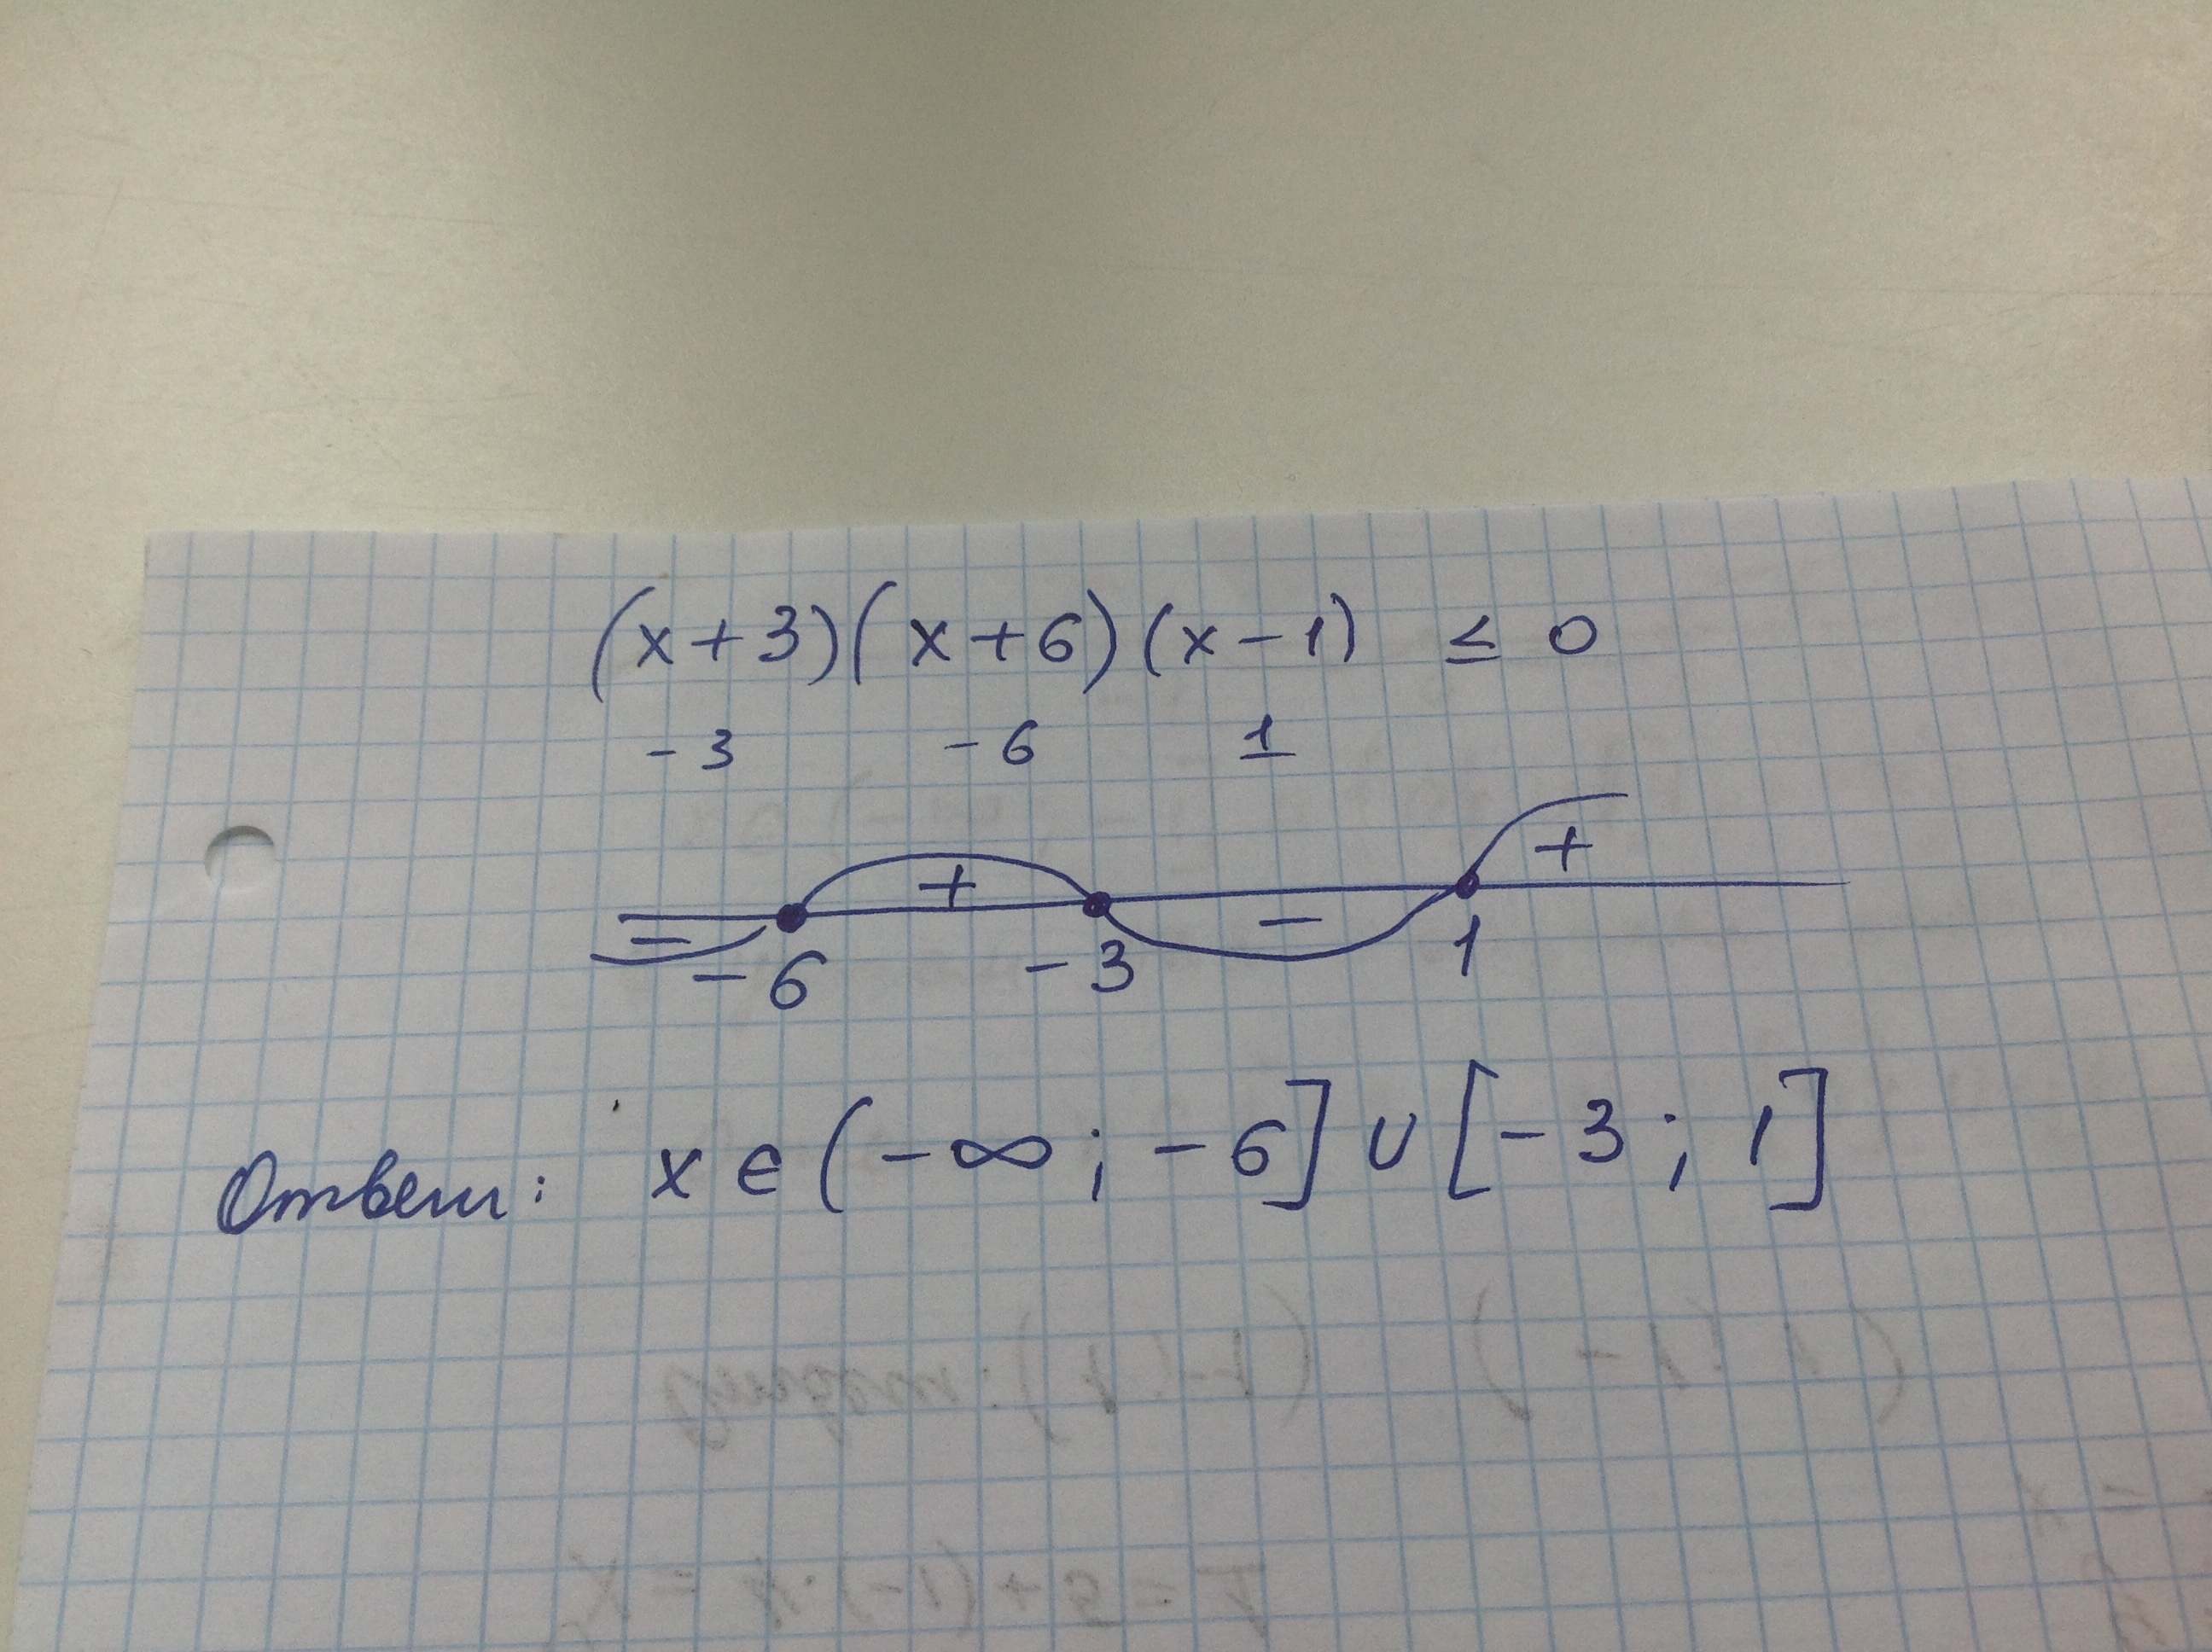 (x+3)(x+6)(x-1) ≤ 0
-3 -6 1
- + - +
-6 -3 1
Ответ: x ∈ (-∞; -6] ∪ [-3; 1]